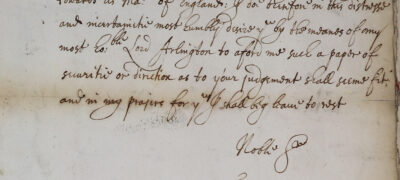 towards as Ma: of England: I doe therefore in this distresse
and incertaintie most humbly desire yu by the meanes of my
most ho:ble Lord Arlington to aford me such a paper of
securitie or direction as to your judgement shall seeme fit
and in my prayers for yu I shall beg leave to rest
Noble Sr